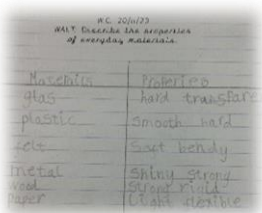 W.C. 20/11/23
WALT: Describe the properties
of everyday materials.
Materials Properties
glas hard transfare
plastic smooth hard
felt Soft bendy
metal Shiny strong
wood Strong
paper Light flexible